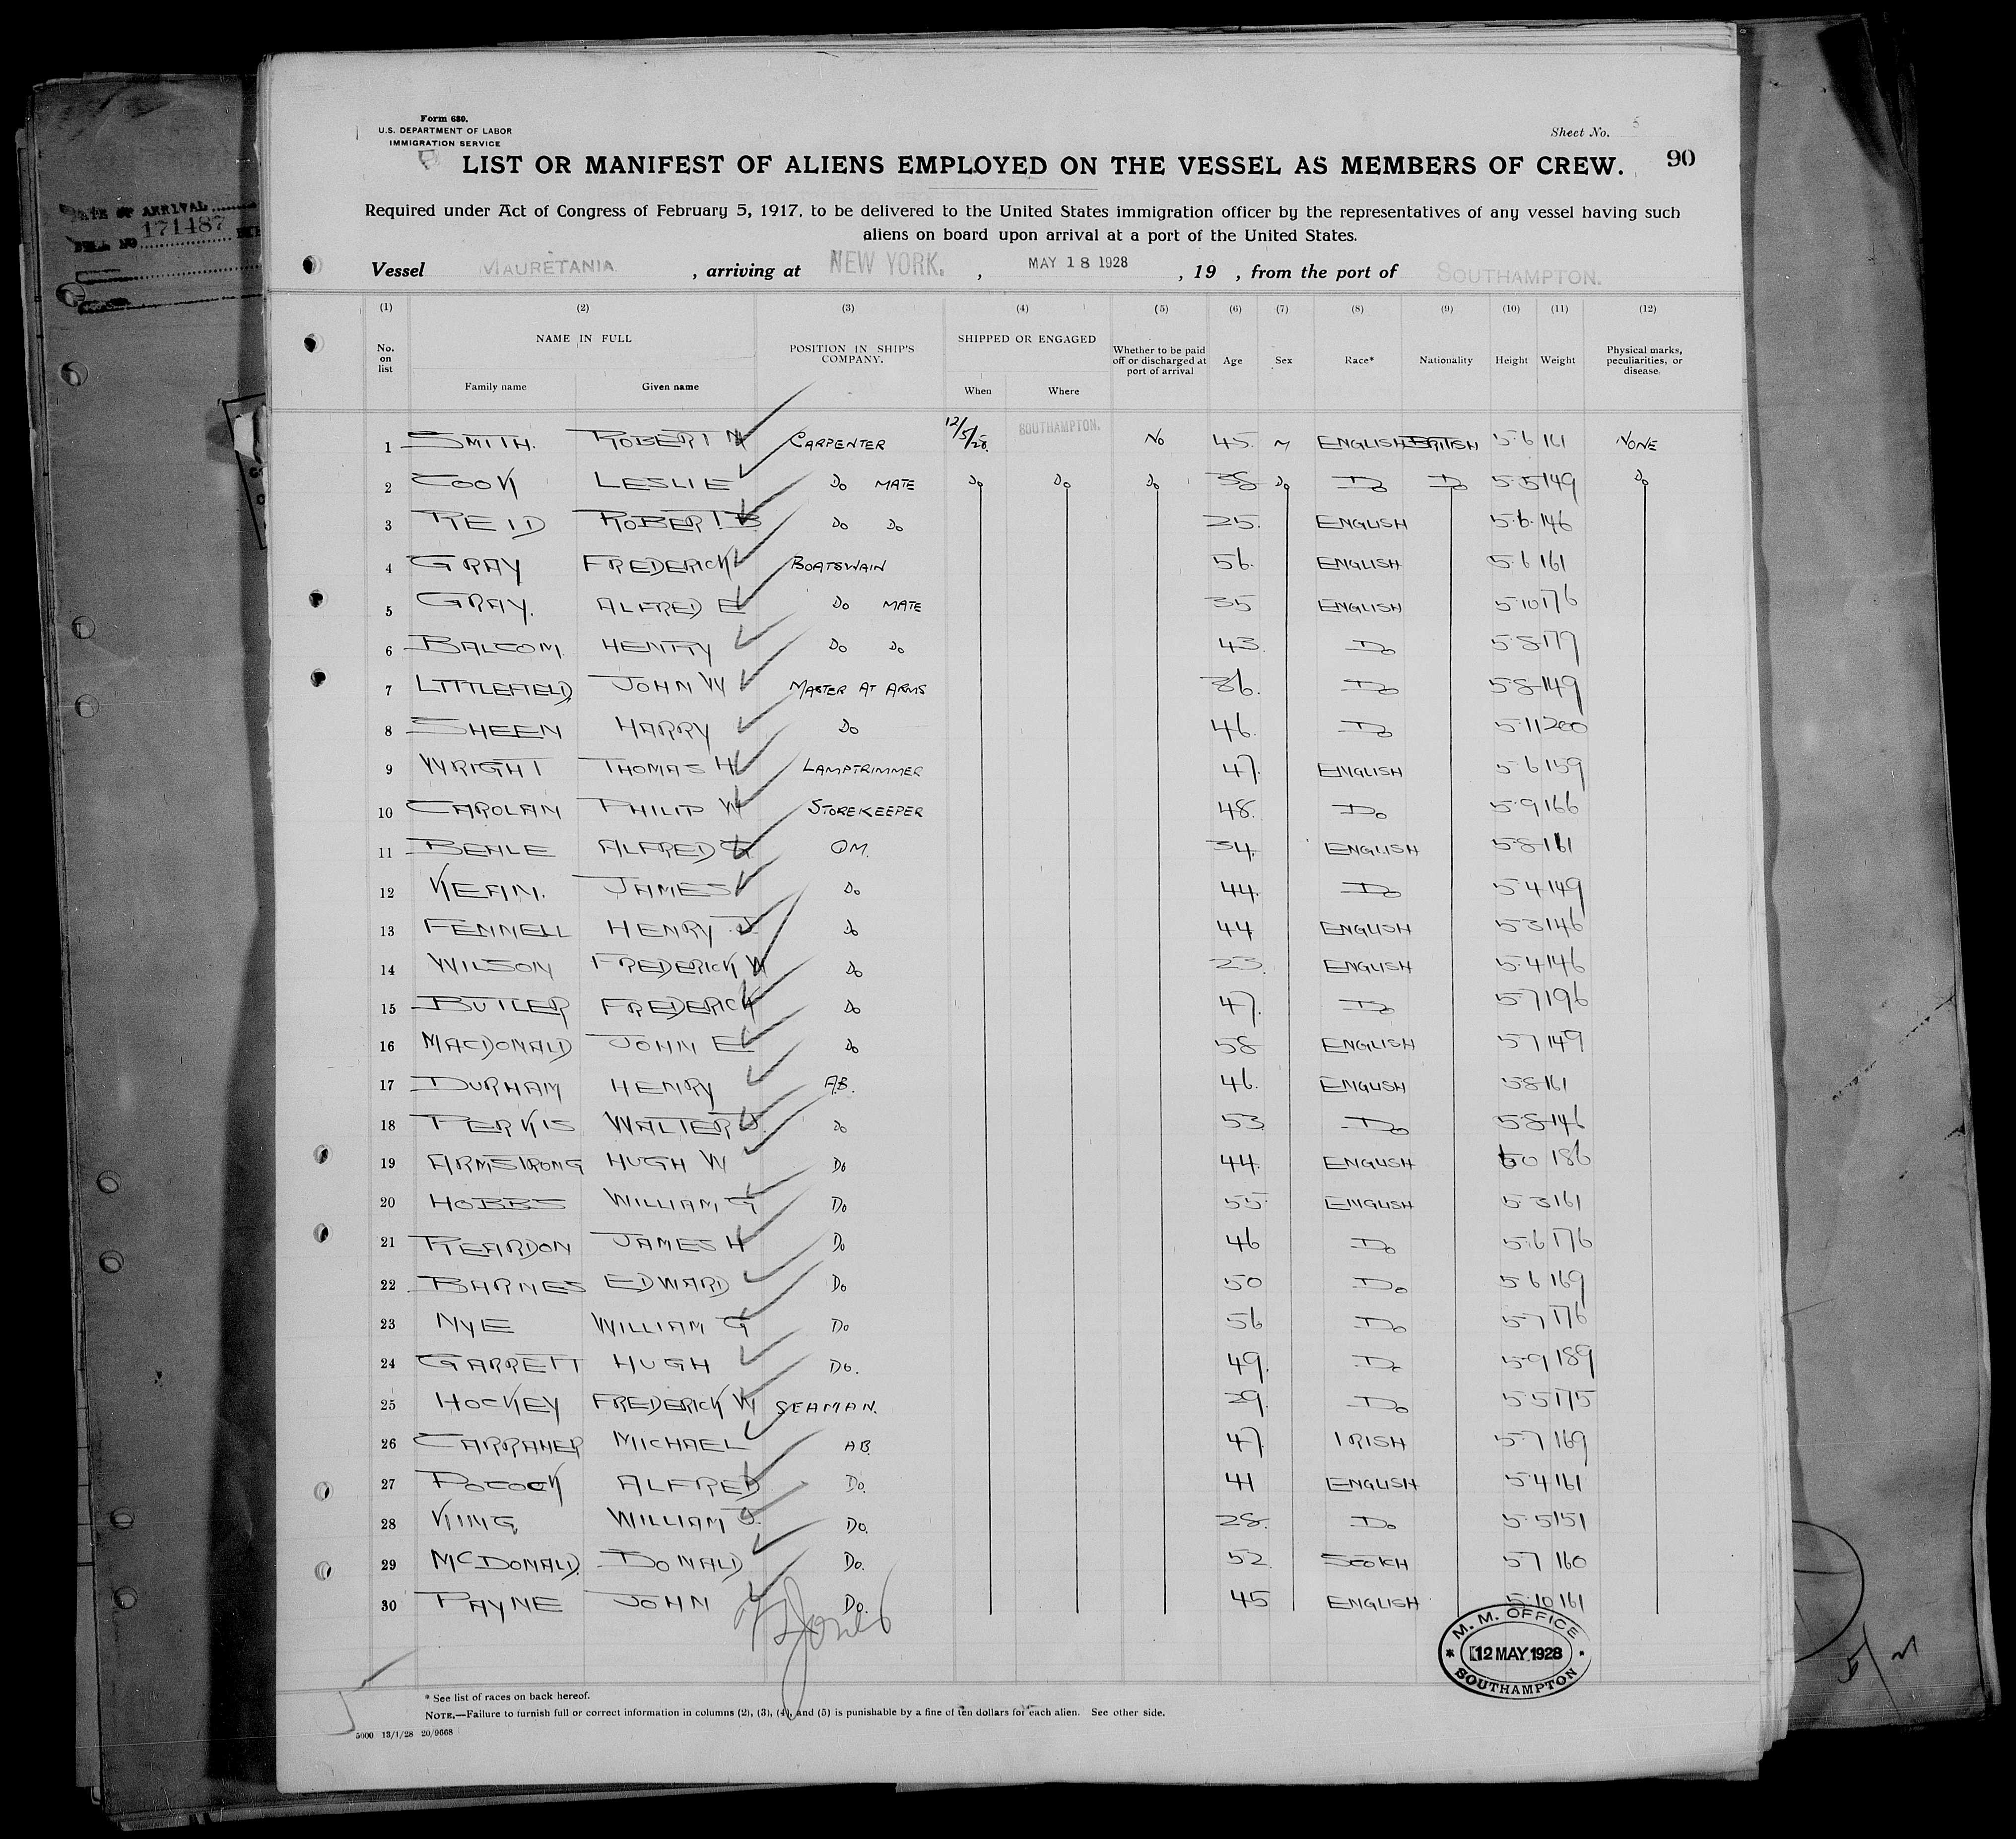 Form 680.
U.S. DEPARTMENT OF LABOR
IMMIGRATION SERVICE
Sheet No. 5
LIST OR MANIFEST OF ALIENS EMPLOYED ON THE VESSEL AS MEMBERS OF CREW. 90
Required under Act of Congress of February 5, 1917, to be delivered to the United States immigration officer by the representatives of any vessel having such
aliens on board upon arrival at a port of the United States.
DATE OF ARRIVAL
171487
Vessel MAURETANIA, arriving at NEW YORK., MAY 18 1928, 19 , from the port of SOUTHAMPTON.
(1) (2) (3) (4) (5) (6) (7) (8) (9) (10) (11) (12)
No. on list NAME IN FULL Family name Given name POSITION IN SHIP'S COMPANY. SHIPPED OR ENGAGED When Where Whether to be paid off or discharged at port of arrival Age Sex Race* Nationality Height Weight Physical marks, peculiarities, or disease.
1 SMITH. ROBERT N CARPENTER 12/5/28. SOUTHAMPTON. NO 45. M ENGLISH BRITISH 5.6 161 NONE
2 COOK LESLIE DO MATE DO DO DO 38 DO DO DO 5.5 149 DO
3 REID ROBERT B DO DO 25. ENGLISH 5.6. 146
4 GRAY FREDERICK BOATSWAIN 56. ENGLISH 5.6 161
5 GRAY. ALFRED E DO MATE 35 ENGLISH 5.10 176
6 BALCOM. HENRY DO DO 43. DO 5.8 179
7 LITTLEFIELD JOHN W MASTER AT ARMS 36. DO 5.8 149
8 SHEEN HARRY DO 46. DO 5.11 200
9 WRIGHT THOMAS H LAMPTRIMMER 47. ENGLISH 5.6 159
10 CAROLAN PHILIP W STOREKEEPER 48. DO 5.9 166
11 BEALE ALFRED G. QM. 34. ENGLISH 5.8 161
12 KEAN. JAMES DO 44. DO 5.4 149
13 FENNELL HENRY J. DO 44 ENGLISH 5.3 146
14 WILSON FREDERICK W DO 23. ENGLISH 5.4 146
15 BUTLER FREDERICK DO 47. DO 5.7 196
16 MACDONALD JOHN E DO 58 ENGLISH 5.7 149
17 DURHAM HENRY A.B. 46. ENGLISH 5.8 161
18 PERKIS WALTER J. DO 53 DO 5.8 146
19 ARMSTRONG HUGH W DO 44. ENGLISH 6.0 186
20 HOBBS WILLIAM G DO 55. ENGLISH 5.3 161
21 REARDON JAMES H DO 46 DO 5.6 176
22 BARNES EDWARD DO 50 DO 5.6 169
23 NYE WILLIAM G DO 56 DO 5.7 176
24 GARRETT HUGH DO. 49. DO 5.9 189
25 HOCKEY FREDERICK W SEAMAN. 29. DO 5.5 175
26 CARRAHER MICHAEL AB. 47. IRISH 5.7 169
27 POCOCK ALFRED DO. 41 ENGLISH 5.4 161
28 KING WILLIAM J. DO. 28. DO 5.5 151
29 MCDONALD. DONALD DO. 52 SCOTCH 5.7 160
30 PAYNE JOHN DO. 45 ENGLISH 5.10 161
M. M. OFFICE
12 MAY 1928
SOUTHAMPTON
* See list of races on back hereof.
NOTE.—Failure to furnish full or correct information in columns (2), (3), (4), and (5) is punishable by a fine of ten dollars for each alien. See other side.
5000 13/1/28 20/9668